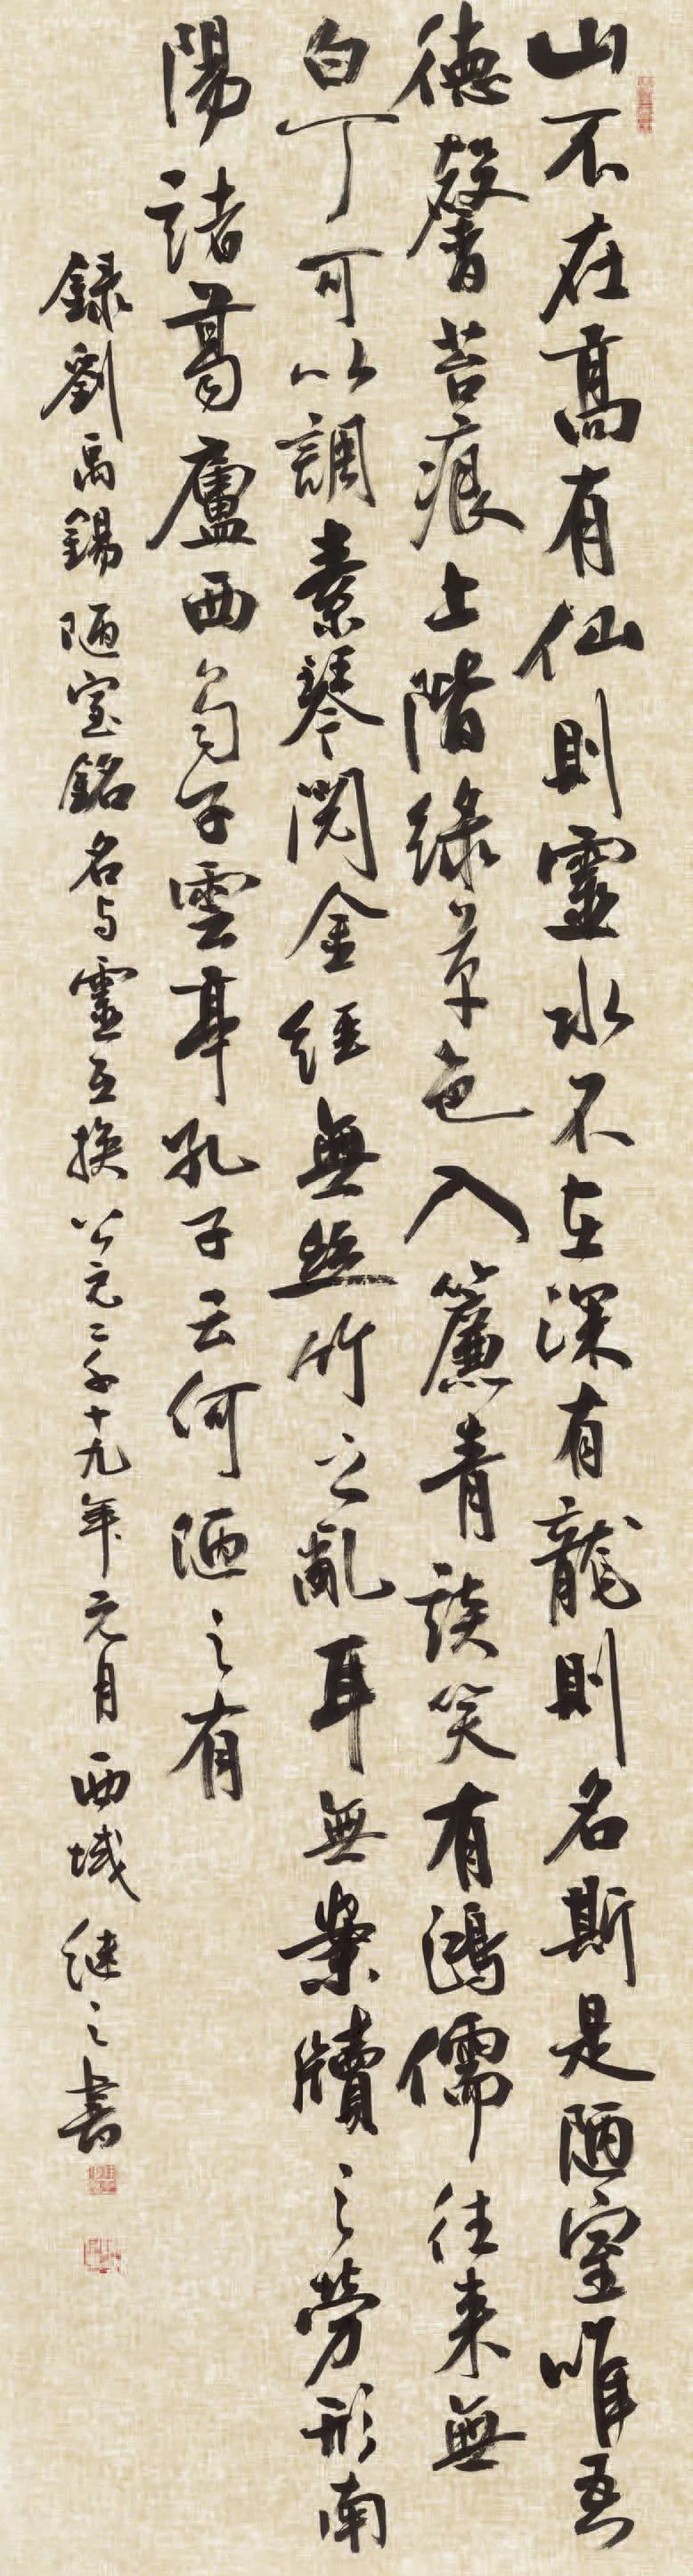 山不在高有仙則靈水不在深有龍則名斯是陋室唯吾
德馨苔痕上階綠草色入簾青談笑有鴻儒往来無
白丁可以調素琴閱金經無絲竹之亂耳無案牘之勞形南
陽諸葛廬西蜀子雲亭孔子云何陋之有
録劉禹錫陋室銘名与靈互換公元二千十九年元月西域継之書